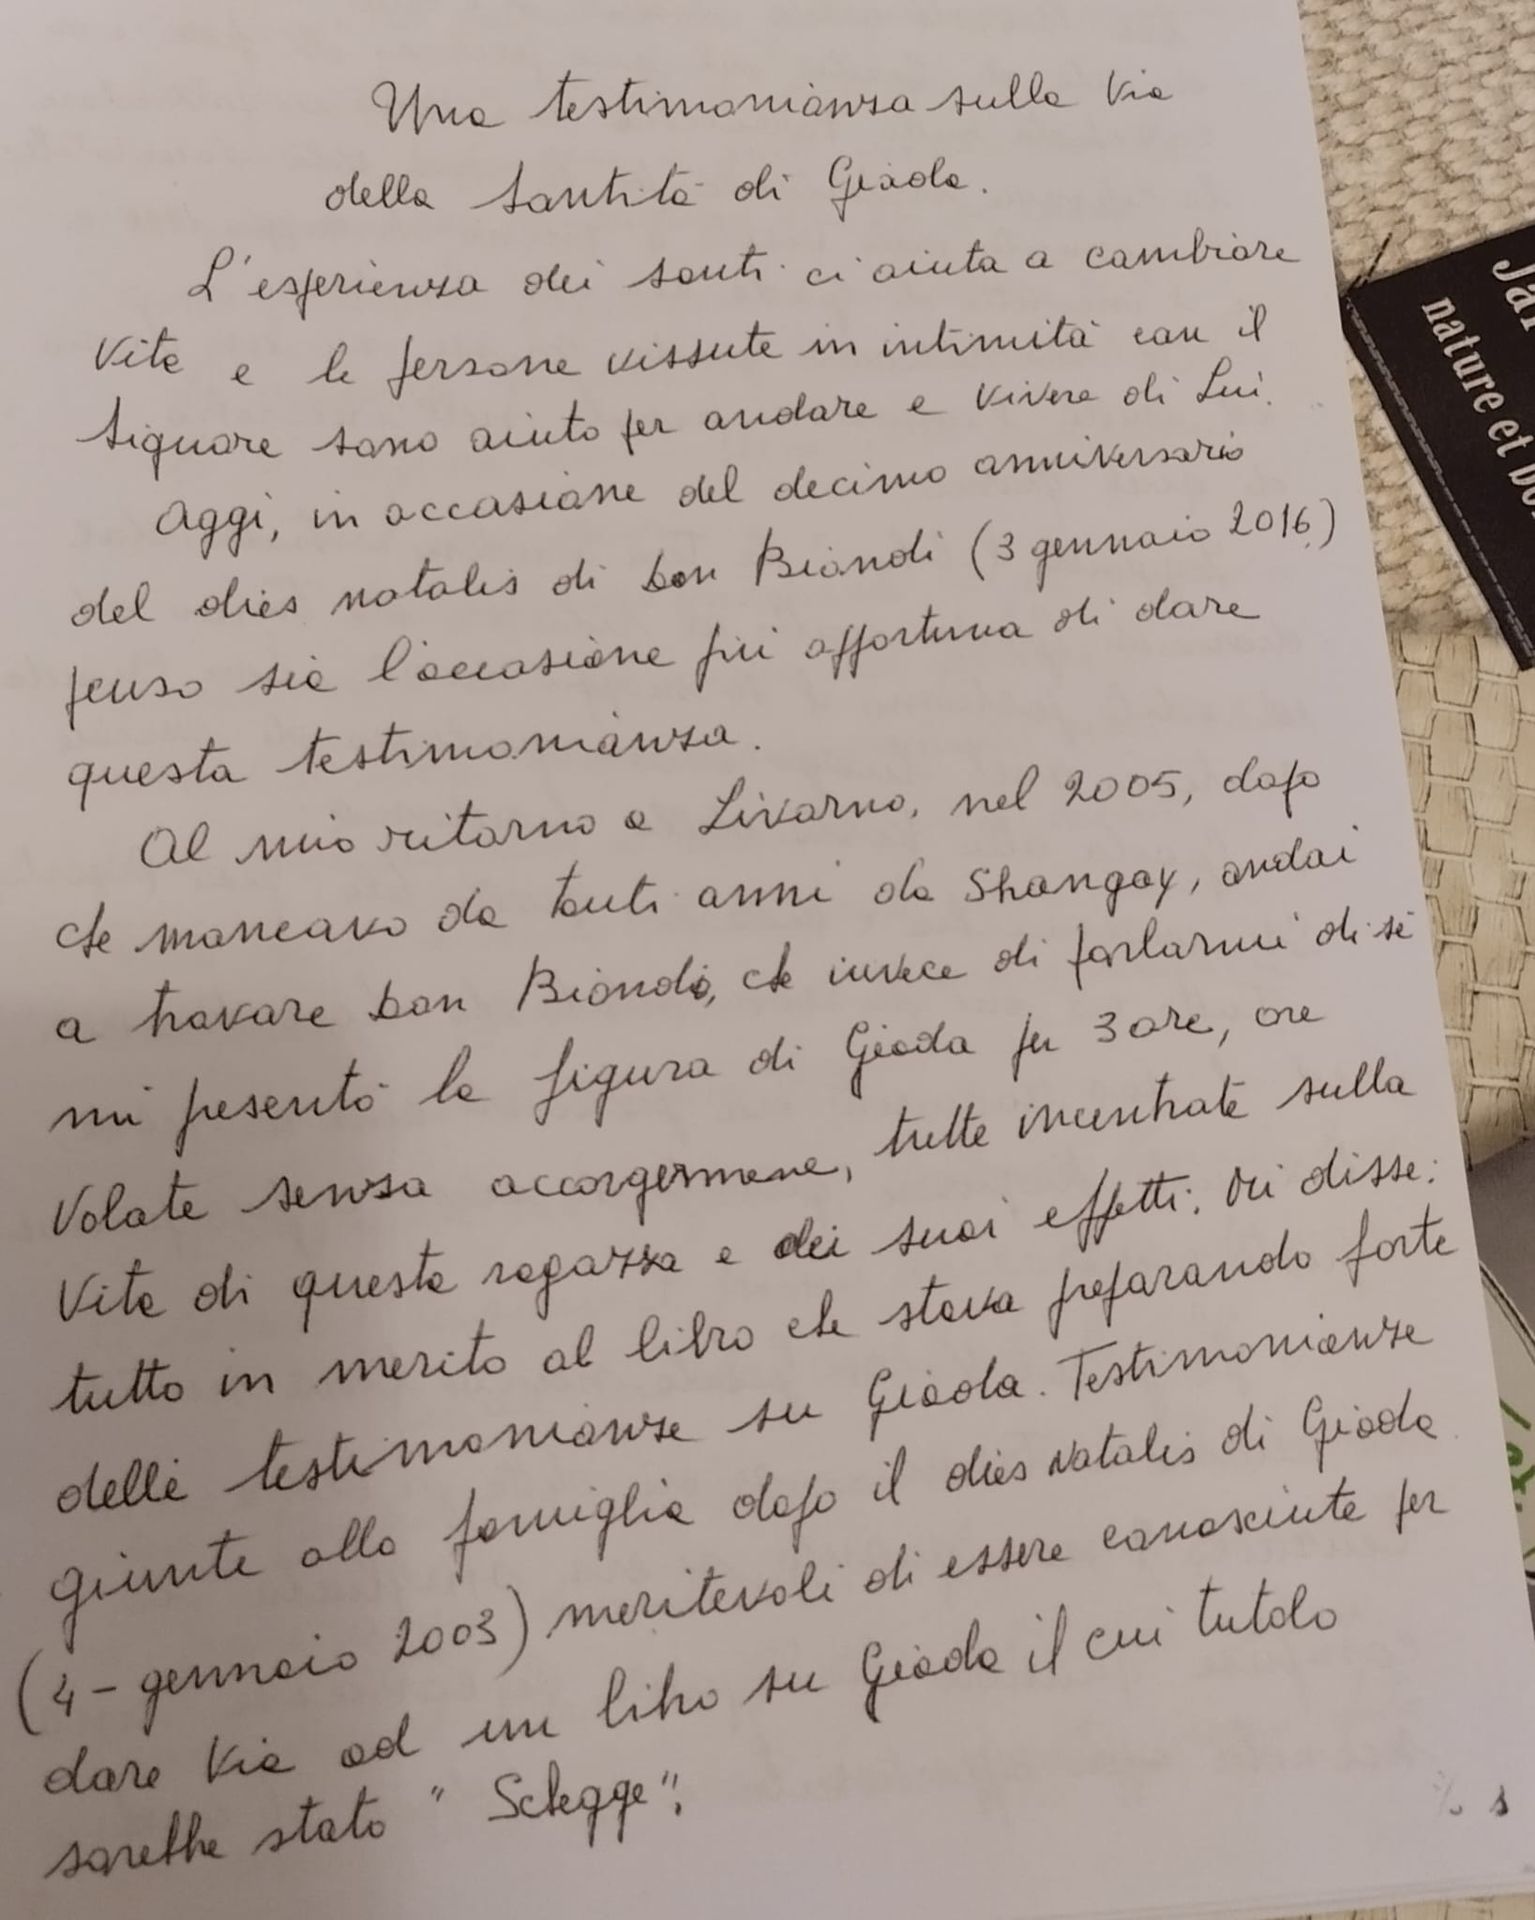 Una testimonianza sulla via
della Santità di Giada.
L'esperienza dei santi ci aiuta a cambiare
vita e le persone vissute in intimità con il
Signore sono aiuto per andare e vivere di Lui.
Oggi, in occasione del decimo anniversario
del dies natalis di Don Biondi (3 gennaio 2016)
penso sia l'occasione più opportuna di dare
questa testimonianza.
Al mio ritorno a Livorno, nel 2005, dopo
che mancavo da tanti anni da Shangay, andai
a trovare Don Biondi, che invece di parlarmi di sé
mi pesentò la figura di Giada per 3 ore, ore
volate senza accorgermene, tutte incentrate sulla
vita di questa ragazza e dei suoi effetti; Mi disse:
tutto in merito al libro che stava preparando forte
delle testimonianze su Giada. Testimonianze
giunte alla famiglia dopo il dies Natalis di Giada
(4 - gennaio 2003) meritevoli di essere conosciute per
dare via ad un libro su Giada il cui tutolo
sarebbe stato "Schegge".
Ja
nature et bo